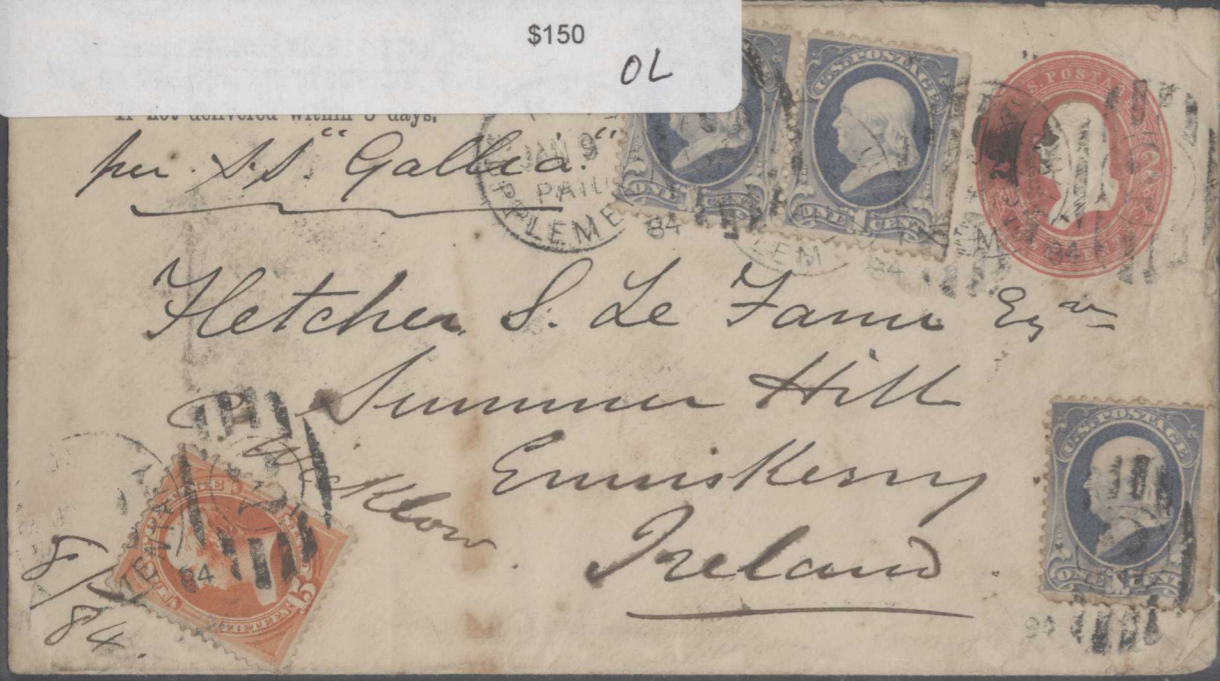 $150
OL
If not delivered within 5 days,
per S.S. "Gallia."
JAN 9
PAID
SUPPLEME
84
U.S. POSTAGE
ONE CENT
U.S. POSTAGE
ONE CENT
U.S. POSTA
84
LEM
84
Fletcher S. Le Fanu Esqre
Summer Hill
Enniskerry
Co Wicklow
Ireland
U.S. POSTAGE
ONE CENT
84
FIFTEEN
15
84
8/1/84.